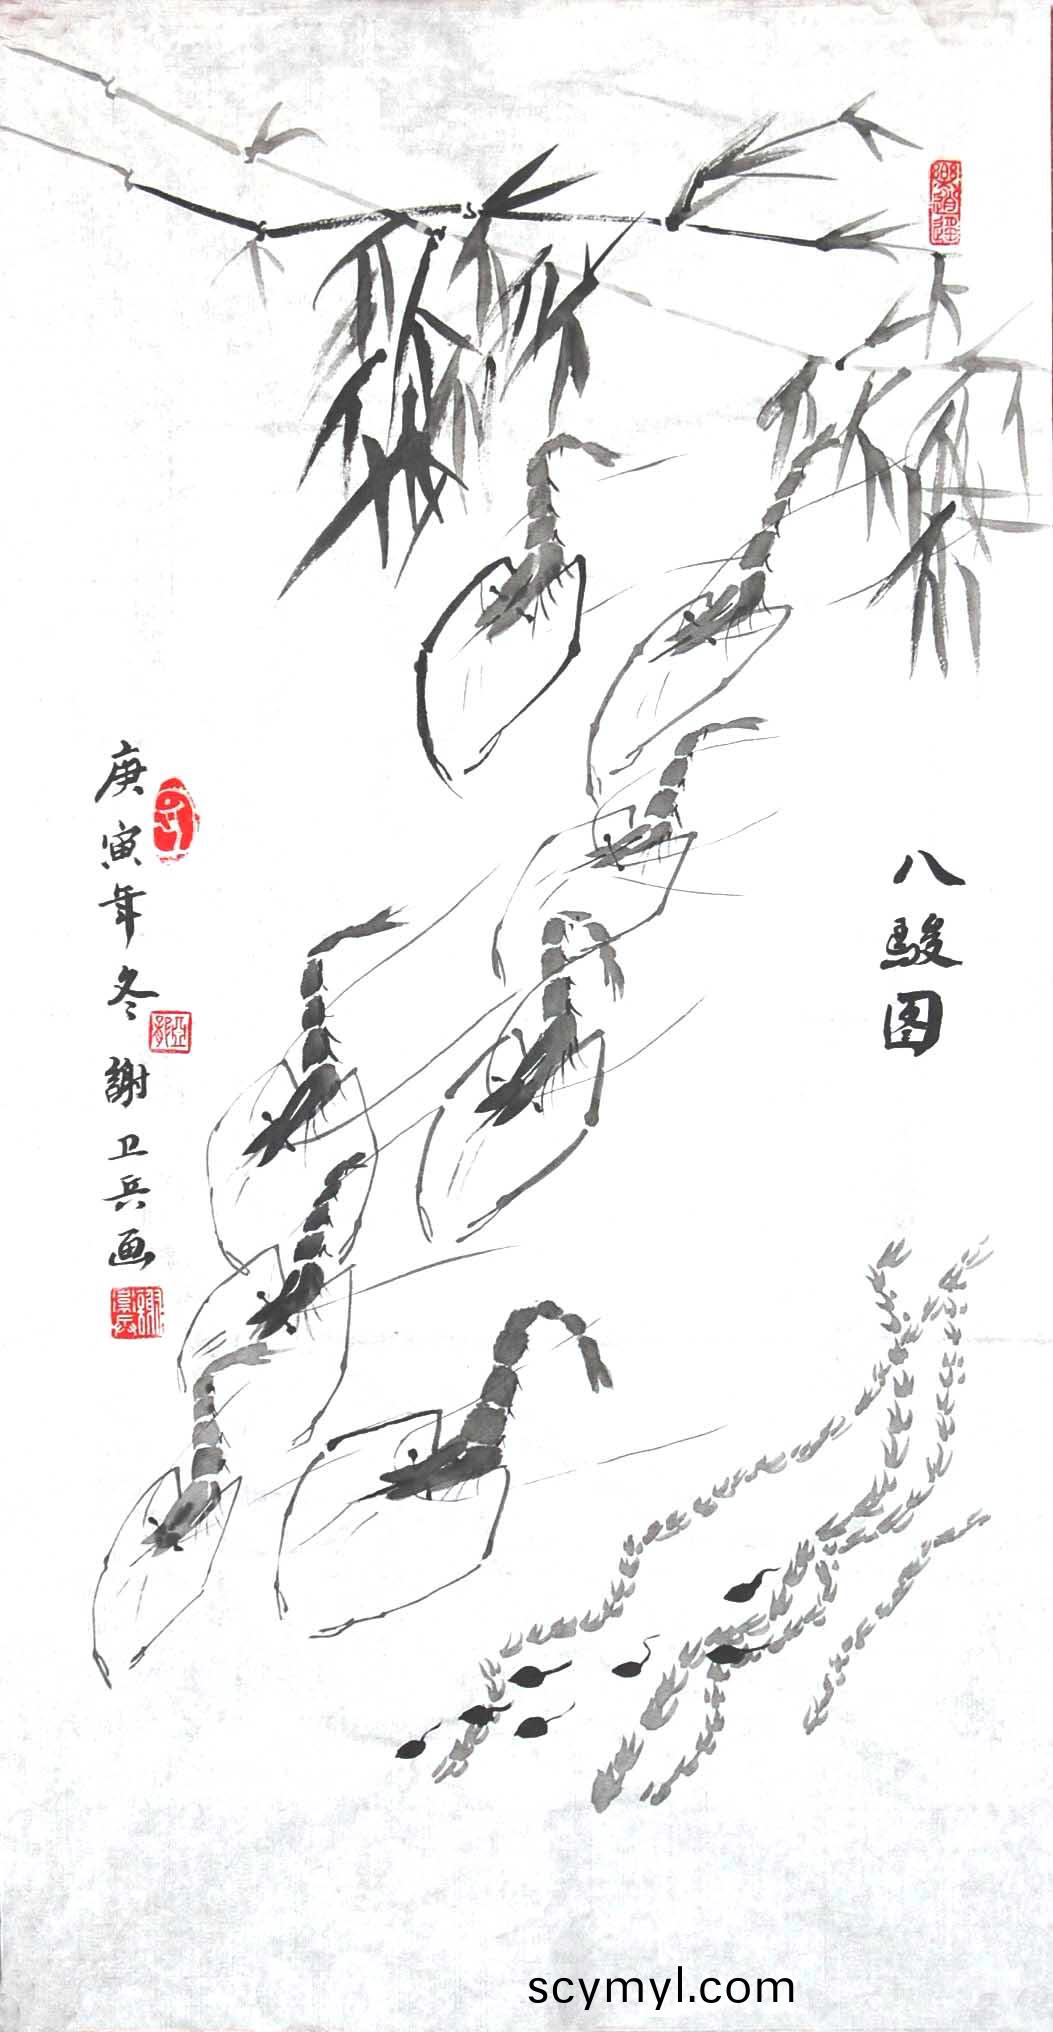 八駿图
庚寅年冬謝卫兵画
scymyl.com